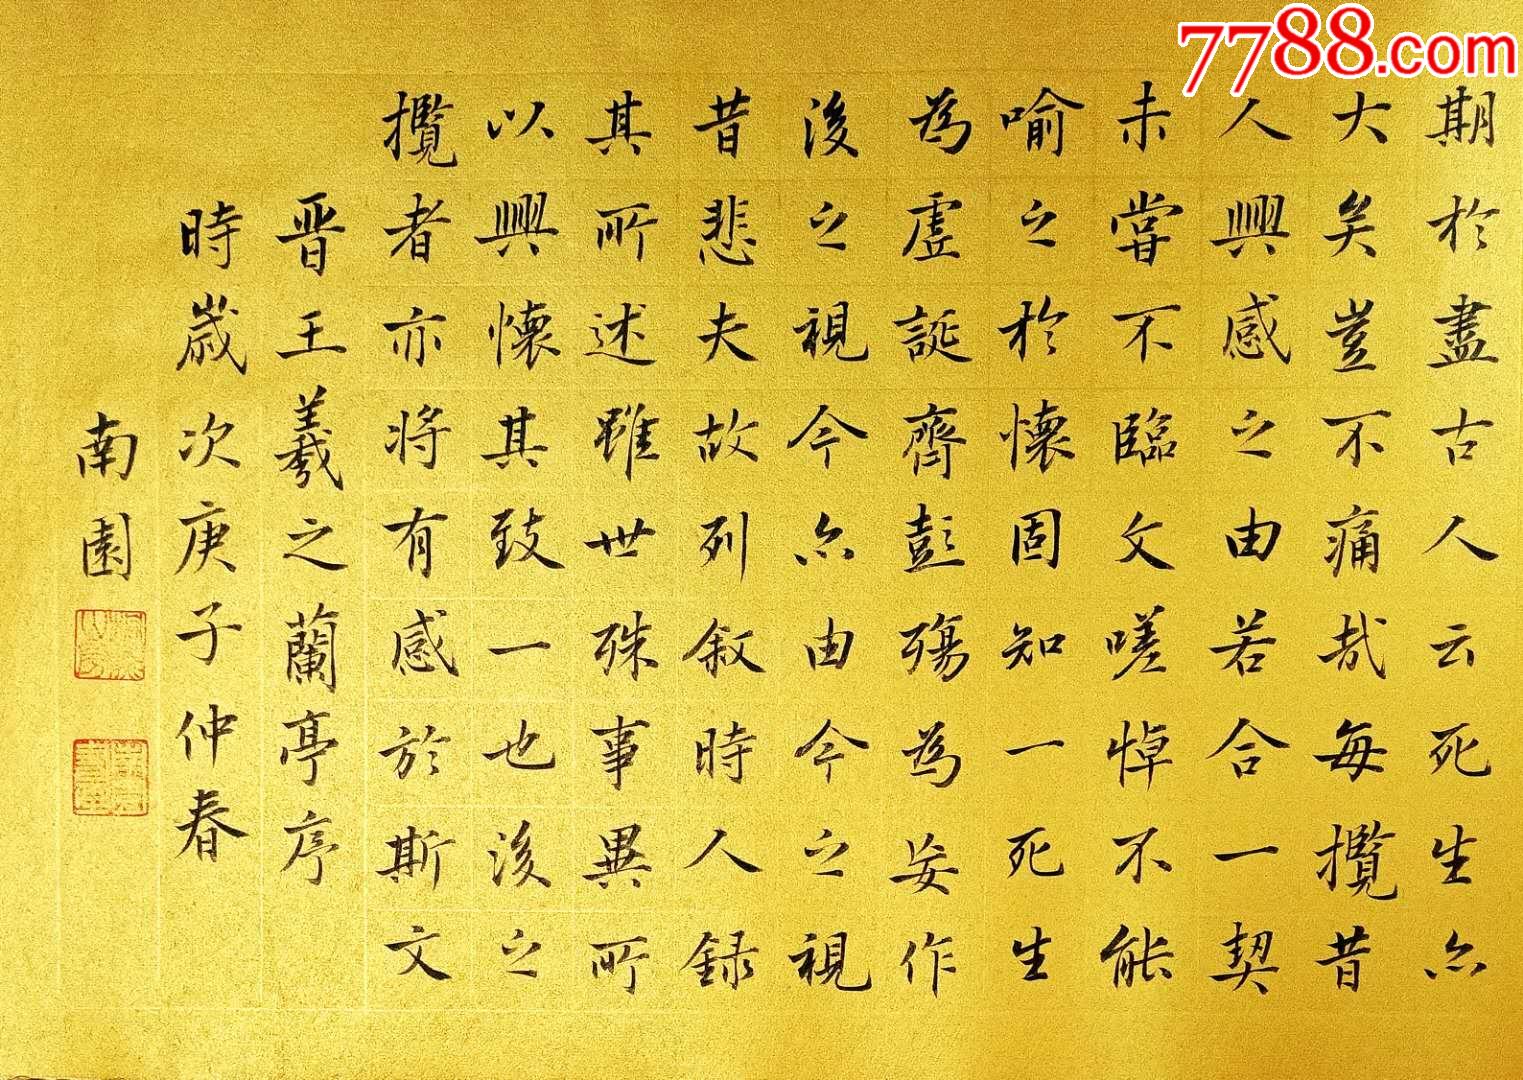 7788.com
期於盡古人云死生亦
大矣豈不痛哉每攬昔
人興感之由若合一契
未嘗不臨文嗟悼不能
喻之於懷固知一死生
為虛誕齊彭殤為妄作
後之視今亦由今之視
昔悲夫故列敘時人錄
其所述雖世殊事異所
以興懷其致一也後之
攬者亦將有感於斯文
晋王羲之蘭亭序
時歲次庚子仲春
南園